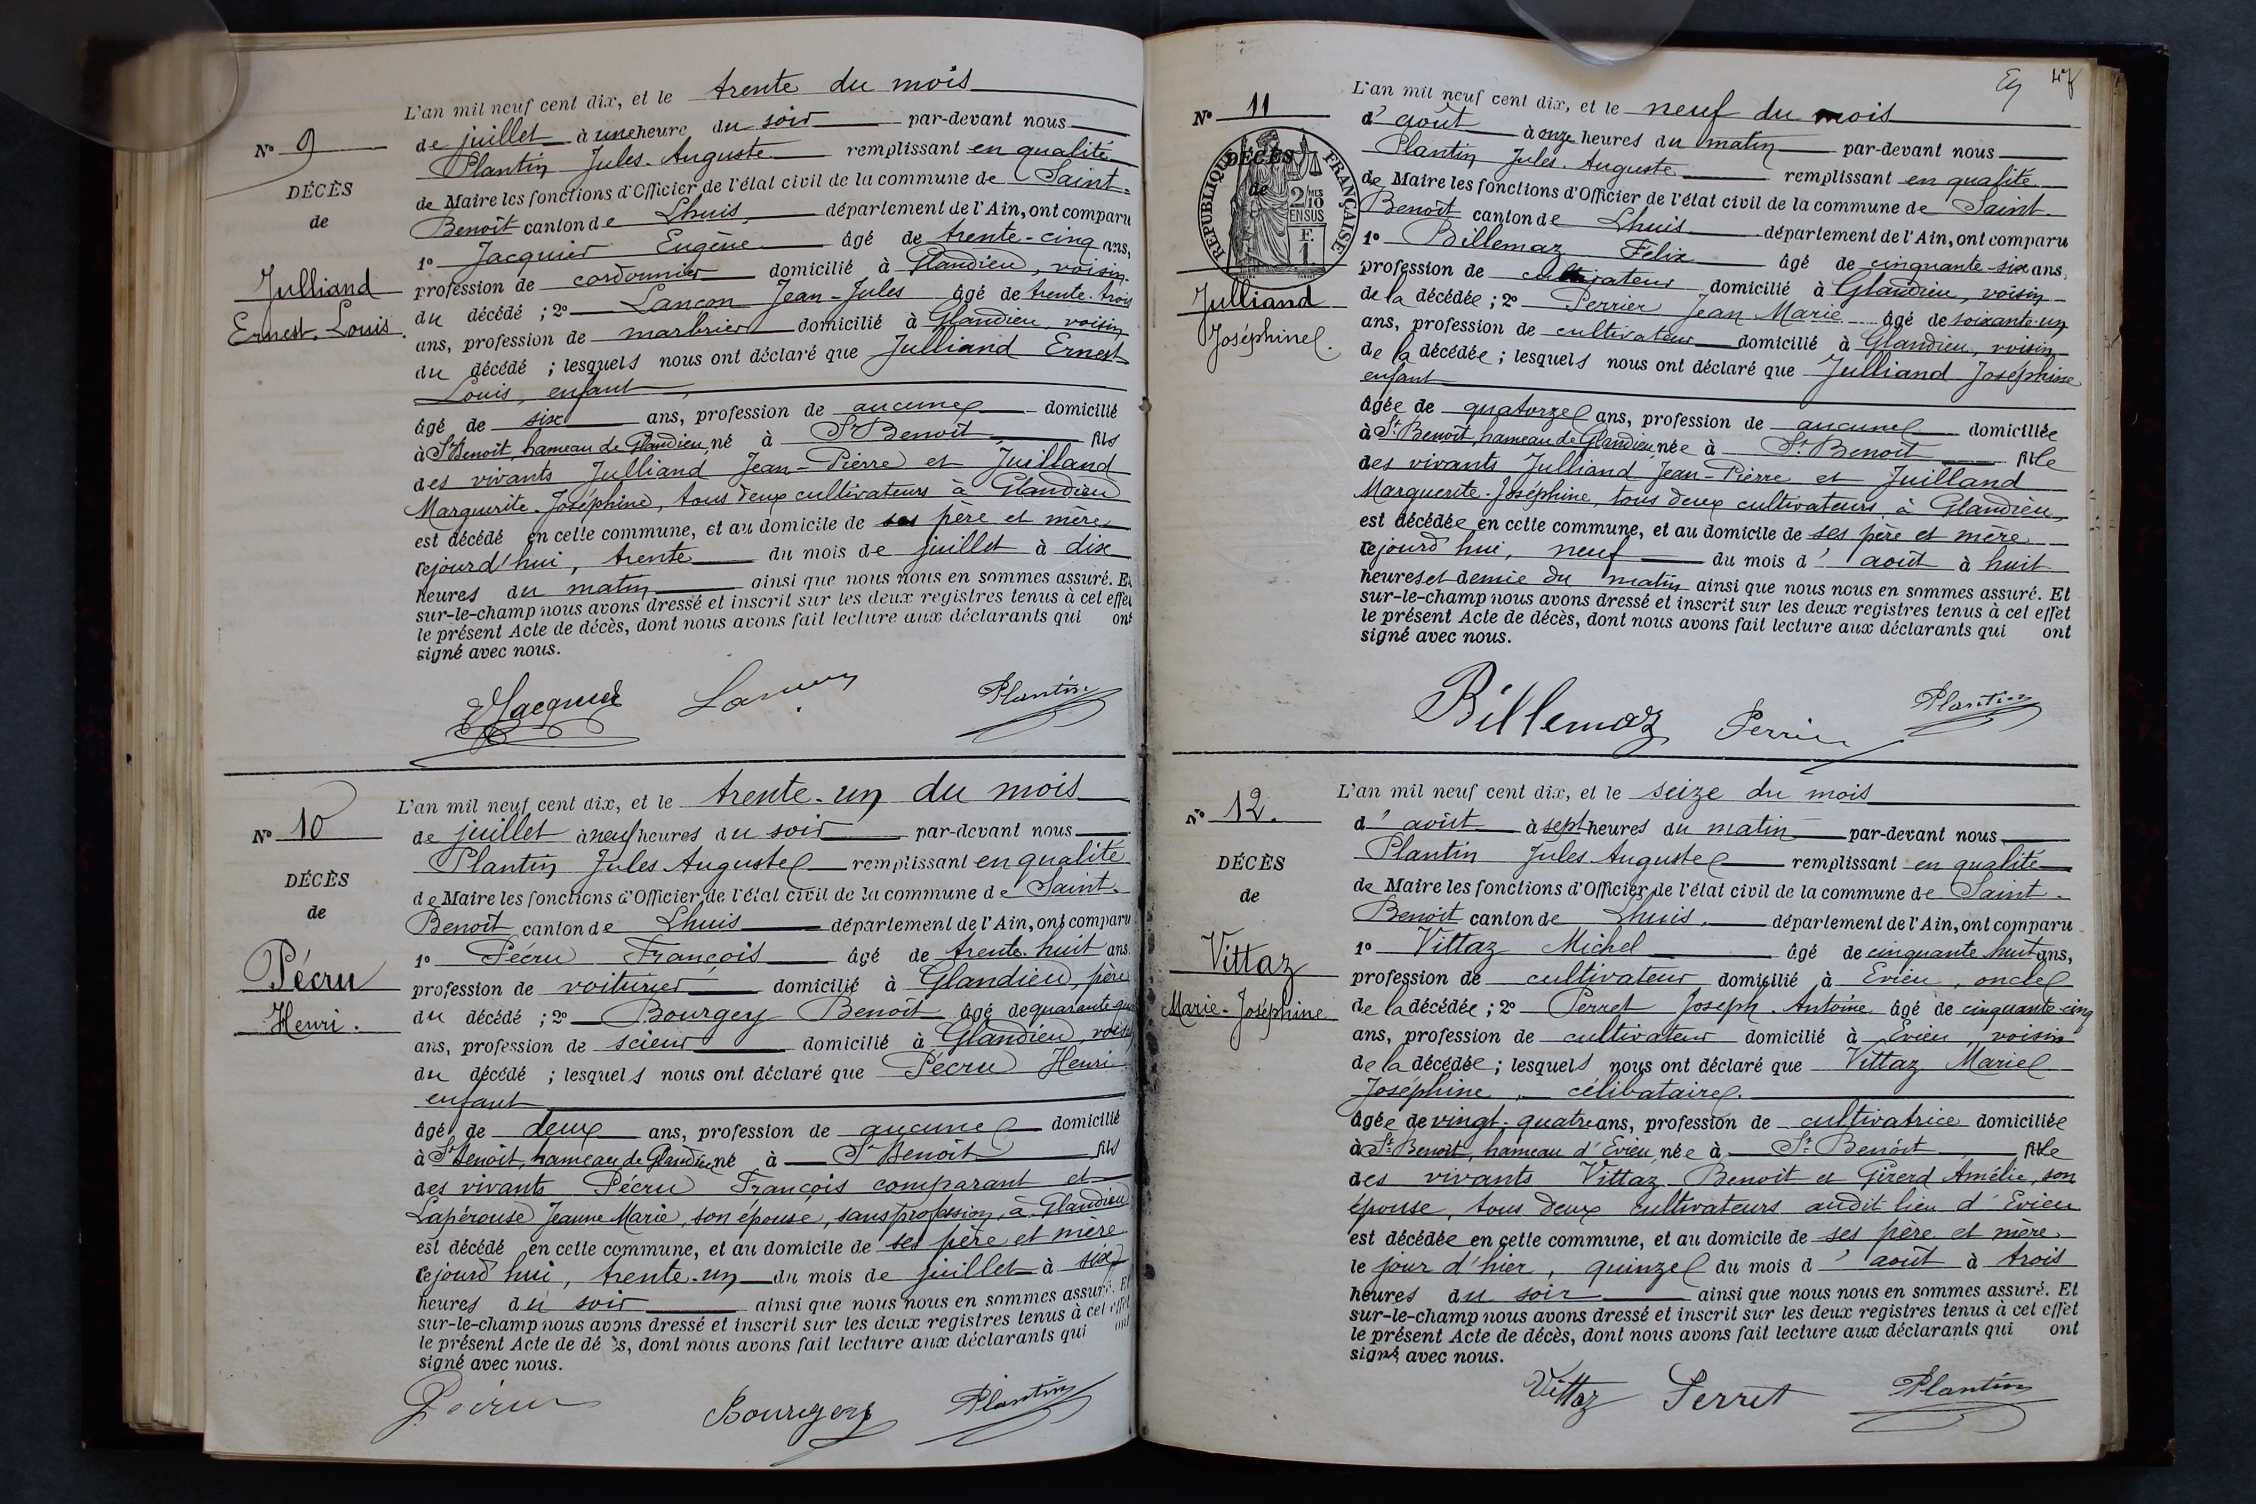 L'an mil neuf cent dix, et le trente du mois
No 9
de juillet à une heure du soir par-devant nous
Plantin Jules-Auguste remplissant en qualité
DÉCÈS
de Maire les fonctions d'Officier de l'état civil de la commune de Saint-
de
Benoît canton de Lhuis département de l'Ain, ont comparu
1º Jacquier Eugène âgé de trente-cinq ans,
profession de cordonnier domicilié à Glandieu, voisin
Julliand
du décédé ; 2º Lançon Jean-Jules âgé de trente-trois
Ernest-Louis.
ans, profession de marbrier domicilié à Glandieu, voisin
du décédé ; lesquels nous ont déclaré que Julliand Ernest
Louis, enfant
âgé de six ans, profession de aucune domicilié
à St Benoit, hameau de Glandieu, né à St Benoit fils
des vivants Julliand Jean-Pierre et Juilland
Marguerite-Joséphine, tous deux cultivateurs à Glandieu
est décédé en cette commune, et au domicile de ses père et mère
cejourd'hui, trente du mois de juillet à dix
heures du matin ainsi que nous nous en sommes assuré. Et
sur-le-champ nous avons dressé et inscrit sur les deux registres tenus à cet effet
le présent Acte de décès, dont nous avons fait lecture aux déclarants qui ont
signé avec nous.
EJacquier Lançon Plantin
L'an mil neuf cent dix, et le trente-un du mois
No 10
de juillet à neuf heures du soir par-devant nous
Plantin Jules Auguste remplissant en qualité
DÉCÈS
de Maire les fonctions d'Officier de l'état civil de la commune de Saint-
de
Benoît canton de Lhuis département de l'Ain, ont comparu
1º Pécru François âgé de trente-huit ans
Pécru
profession de voiturier domicilié à Glandieu, père
Henri.
du décédé ; 2º Bourgey Benoît âgé de quarante
ans, profession de scieur domicilié à Glandieu, voisin
du décédé ; lesquels nous ont déclaré que Pécru Henri
enfant
âgé de deux ans, profession de aucune domicilié
à St Benoit, hameau de Glandieu, né à St Benoit fils
des vivants Pécru François comparant et
Lapérouse Jeanne Marie, son épouse, sans profession, à Glandieu
est décédé en cette commune, et au domicile de ses père et mère
cejourd'hui, trente-un du mois de juillet à six
heures du soir ainsi que nous nous en sommes assuré. Et
sur-le-champ nous avons dressé et inscrit sur les deux registres tenus à cet effet
le présent Acte de décès, dont nous avons fait lecture aux déclarants qui ont
signé avec nous.
Pécru Bourgey Plantin
L'an mil neuf cent dix, et le neuf du mois
No 11
d'août à onze heures du matin par-devant nous
RÉPUBLIQUE FRANÇAISE
2/10 MES
EN SUS
F. 1
Plantin Jules-Auguste remplissant en qualité
DÉCÈS
de Maire les fonctions d'Officier de l'état civil de la commune de Saint-
de
Benoît canton de Lhuis département de l'Ain, ont comparu
1º Billemaz Félix âgé de cinquante-six ans,
profession de cultivateur domicilié à Glandieu, voisin
Julliand
de la décédée ; 2º Perrier Jean Marie âgé de soixante-un
Joséphine.
ans, profession de cultivateur domicilié à Glandieu, voisin
de la décédée ; lesquels nous ont déclaré que Julliand Joséphine
enfant
âgée de quatorze ans, profession de aucune domiciliée
à St Benoit, hameau de Glandieu, née à St Benoit fille
des vivants Julliand Jean-Pierre et Juilland
Marguerite-Joséphine, tous deux cultivateurs à Glandieu
est décédée en cette commune, et au domicile de ses père et mère
cejourd'hui, neuf du mois d'août à huit
heures et demie du matin ainsi que nous nous en sommes assuré. Et
sur-le-champ nous avons dressé et inscrit sur les deux registres tenus à cet effet
le présent Acte de décès, dont nous avons fait lecture aux déclarants qui ont
signé avec nous.
Billemaz Perrier Plantin
L'an mil neuf cent dix, et le seize du mois
No 12.
d'août à sept heures du matin par-devant nous
Plantin Jules Auguste remplissant en qualité
DÉCÈS
de Maire les fonctions d'Officier de l'état civil de la commune de Saint-
de
Benoît canton de Lhuis département de l'Ain, ont comparu
1º Vittaz Michel âgé de cinquante huit ans,
Vittaz
profession de cultivateur domicilié à Evieu, oncle
Marie-Joséphine
de la décédée ; 2º Perret Joseph-Antoine âgé de cinquante-cinq
ans, profession de cultivateur domicilié à Evieu, voisin
de la décédée ; lesquels nous ont déclaré que Vittaz Marie
Joséphine, célibataire.
âgée de vingt-quatre ans, profession de cultivatrice domiciliée
à St Benoit, hameau d'Evieu, née à St Benoit fille
des vivants Vittaz Benoit et Girerd Amélie, son
épouse, tous deux cultivateurs audit lieu d'Evieu
est décédée en cette commune, et au domicile de ses père et mère,
le jour d'hier, quinze du mois d'août à trois
heures du soir ainsi que nous nous en sommes assuré. Et
sur-le-champ nous avons dressé et inscrit sur les deux registres tenus à cet effet
le présent Acte de décès, dont nous avons fait lecture aux déclarants qui ont
signé avec nous.
Vittaz Perret Plantin